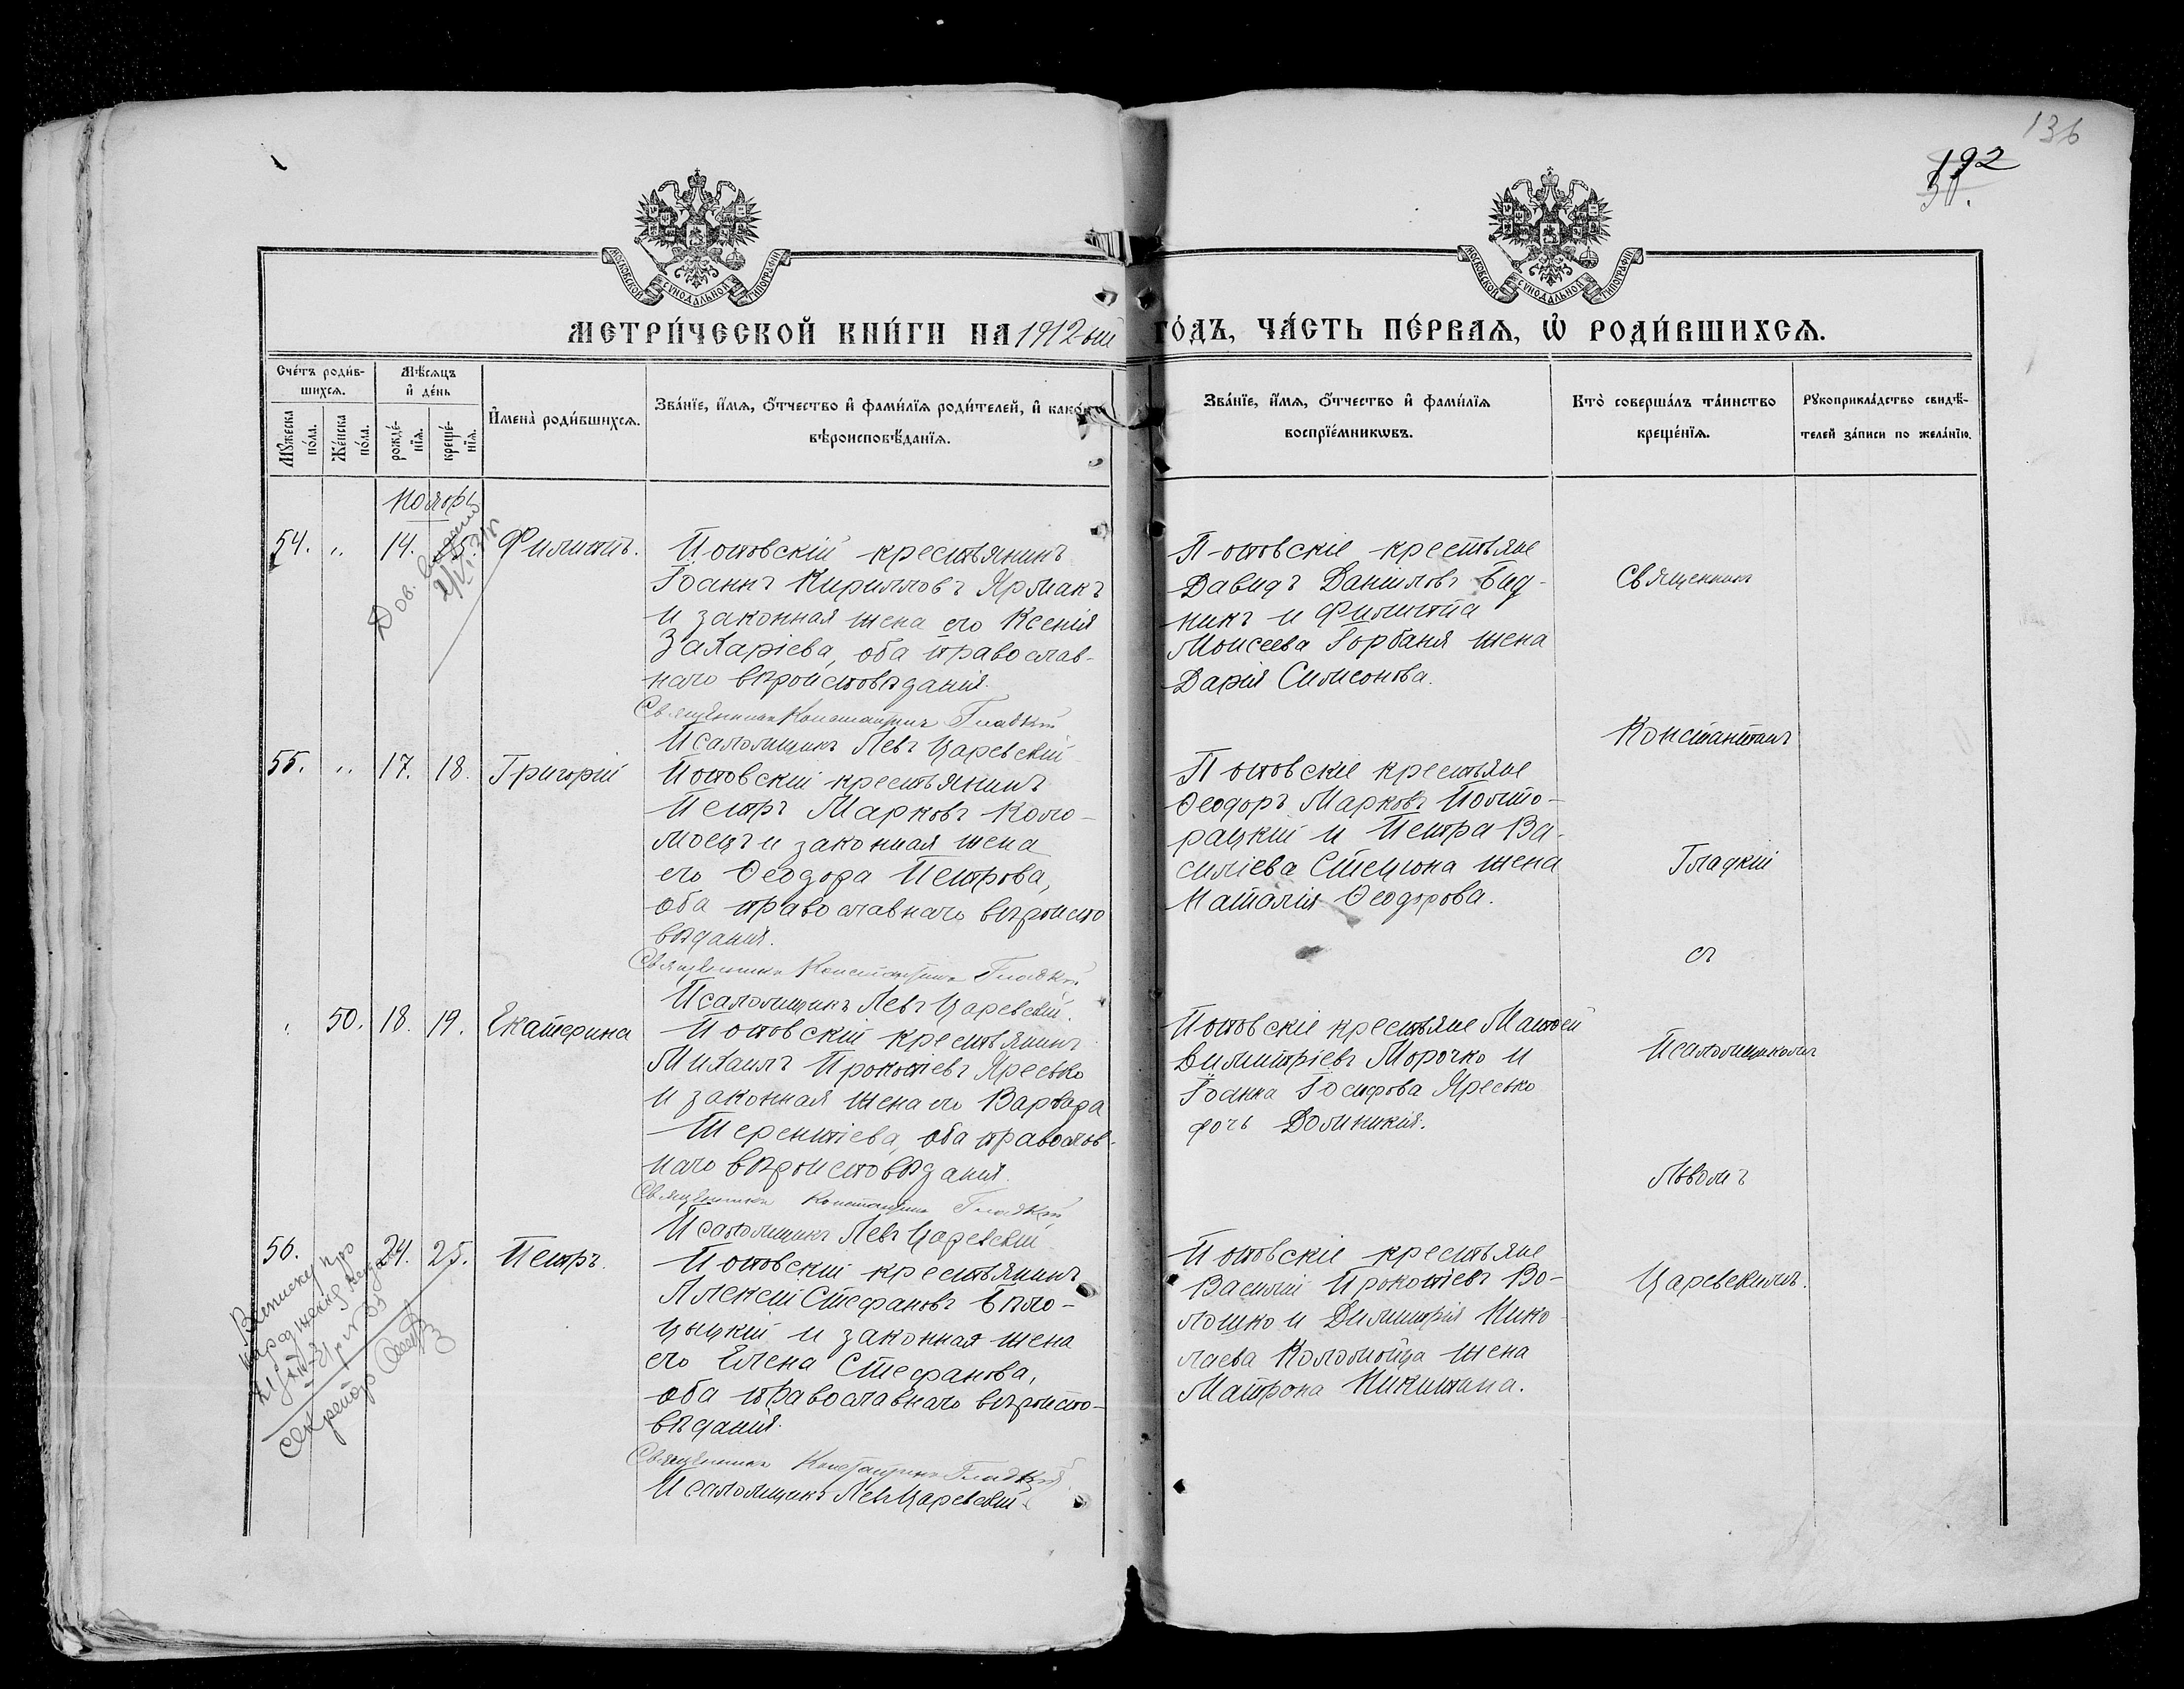 136
192
31.
МОСКОВСКОЙ СѴНОДАЛЬНОЙ ТИПОГРАФІИ
МОСКОВСКОЙ СѴНОДАЛЬНОЙ ТИПОГРАФІИ
МЕТРИ́ЧЕСКОЙ КНИ́ГИ НА 1912-ый ГО́ДЪ, ЧА́СТЬ ПЕ́РВАѦ, Ѽ РОДИ́ВШИХСѦ.
Сче́тъ роди́в-
шихсѧ.
Мꙋ́жеска по́ла.
Же́нска по́ла.
Мѣ́сѧцъ
и҆ де́нь
рожде́-нїѧ.
креще́-нїѧ.
И҆мена̀ роди́вшихсѧ.
Зва́нїе, и҆́мѧ, ѻ҆́тчество и҆ фами́лїѧ роди́телей, и҆ како́гѡ
вѣроисповѣ́данїѧ.
Зва́нїе, и҆́мѧ, ѻ҆́тчество и҆ фами́лїѧ
воспрїе́мникѡвъ.
Кто̀ соверша́лъ та́инство
креще́нїѧ.
Рꙋкоприкла́дство свидѣ́-
телей за́писи по жела́нїю.
Ноябрь
54. " 14. 15. Филиппъ.
Дов. видано
Поповскій крестьянинъ
Іоаннъ Кирилловъ Ярмакъ
и законная жена его Ксенія
Захаріева, оба православ-
наго вѣроисповѣданія.
Священникъ Константинъ Гладкій
Псаломщикъ Левъ Царевскій
Поповскіе крестьяне
Давидъ Даніиловъ Бид-
никъ и Филиппа
Моисеева Горбаня жена
Дарія Симсонова.
Священникъ
Константинъ
Гладкій
съ
Псаломщикомъ
Львомъ
Царевскимъ.
55. " 17. 18. Григорій
Поповскій крестьянинъ
Петръ Марковъ Коло-
моецъ и законная жена
его Ѳеодора Петрова,
оба православнаго вѣроиспо
вѣданія.
Священникъ Константинъ Гладкій
Псаломщикъ Левъ Царевскій.
Поповскіе крестьяне
Ѳеодоръ Марковъ Полто-
рацкій и Петра Ва-
силіева Стецюна жена
Наталія Ѳеодорова.
" 50. 18. 19. Екатерина
Поповскій крестьянинъ
Михаилъ Прокопіевъ Яресько
и законная жена его Варвара
Терентіева, оба православ-
наго вѣроисповѣданія.
Священникъ Константинъ Гладкій
Псаломщикъ Левъ Царевскій
Поповскіе крестьяне Матѳей
Димитріевъ Морочко и
Іоанна Іосифова Яресько
дочь Доминикія.
56. 24. 25. Петръ.
Виписку про
народження видано
21/XII-31 р № 83
секретар
Поповскій крестьянинъ
Алексій Стефановъ Бѣло-
цыцкій и законная жена
его Елена Стефанова,
оба православнаго вѣроиспо-
вѣданія.
Священникъ Константинъ Гладкій.
Псаломщикъ Левъ Царевскій.
Поповскіе крестьяне
Василій Прокопіевъ Во-
лошко и Димитрія Нико-
лаева Коломойца жена
Матрона Никитина.